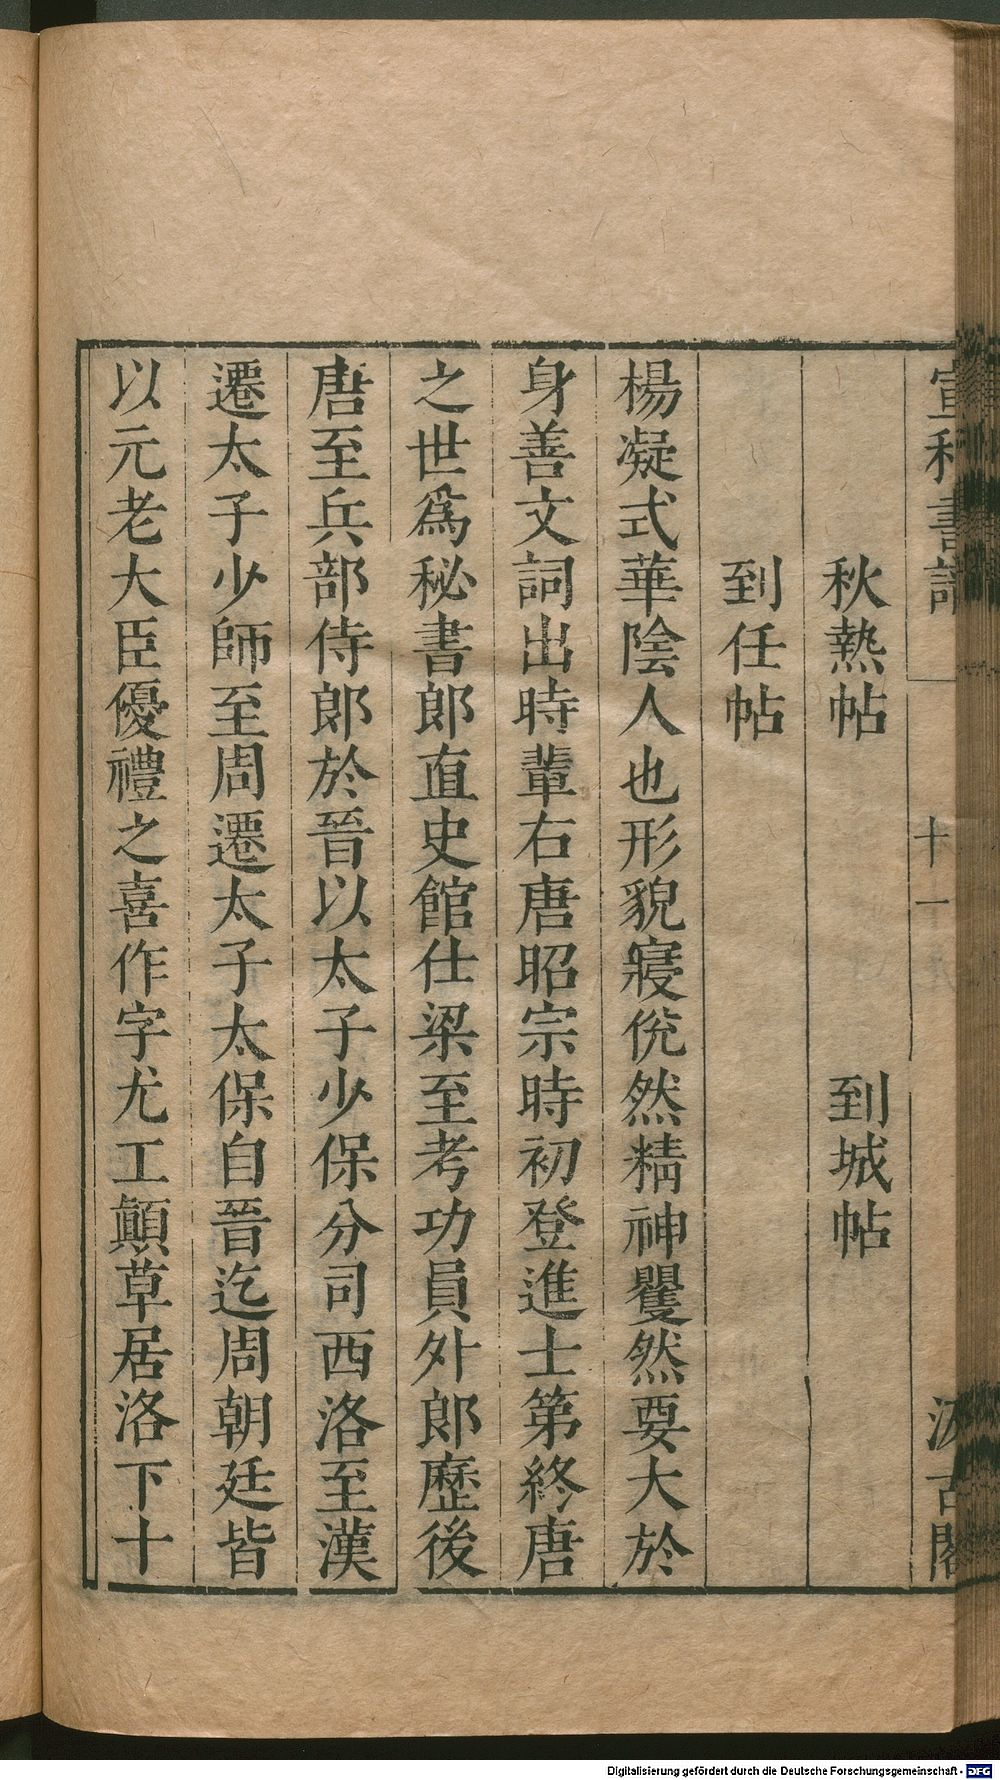 宣和書譜 十一 汲古閣
秋熱帖 到城帖
到任帖
楊凝式華陰人也形貌寢侻然精神矍然要大於
身善文詞出時輩右唐昭宗時初登進士第終唐
之世爲秘書郎直史館仕梁至考功員外郎歷後
唐至兵部侍郎於晉以太子少保分司西洛至漢
遷太子少師至周遷太子太保自晉迄周朝廷皆
以元老大臣優禮之喜作字尤工顚草居洛下十
Digitalisierung gefördert durch die Deutsche Forschungsgemeinschaft - DFG